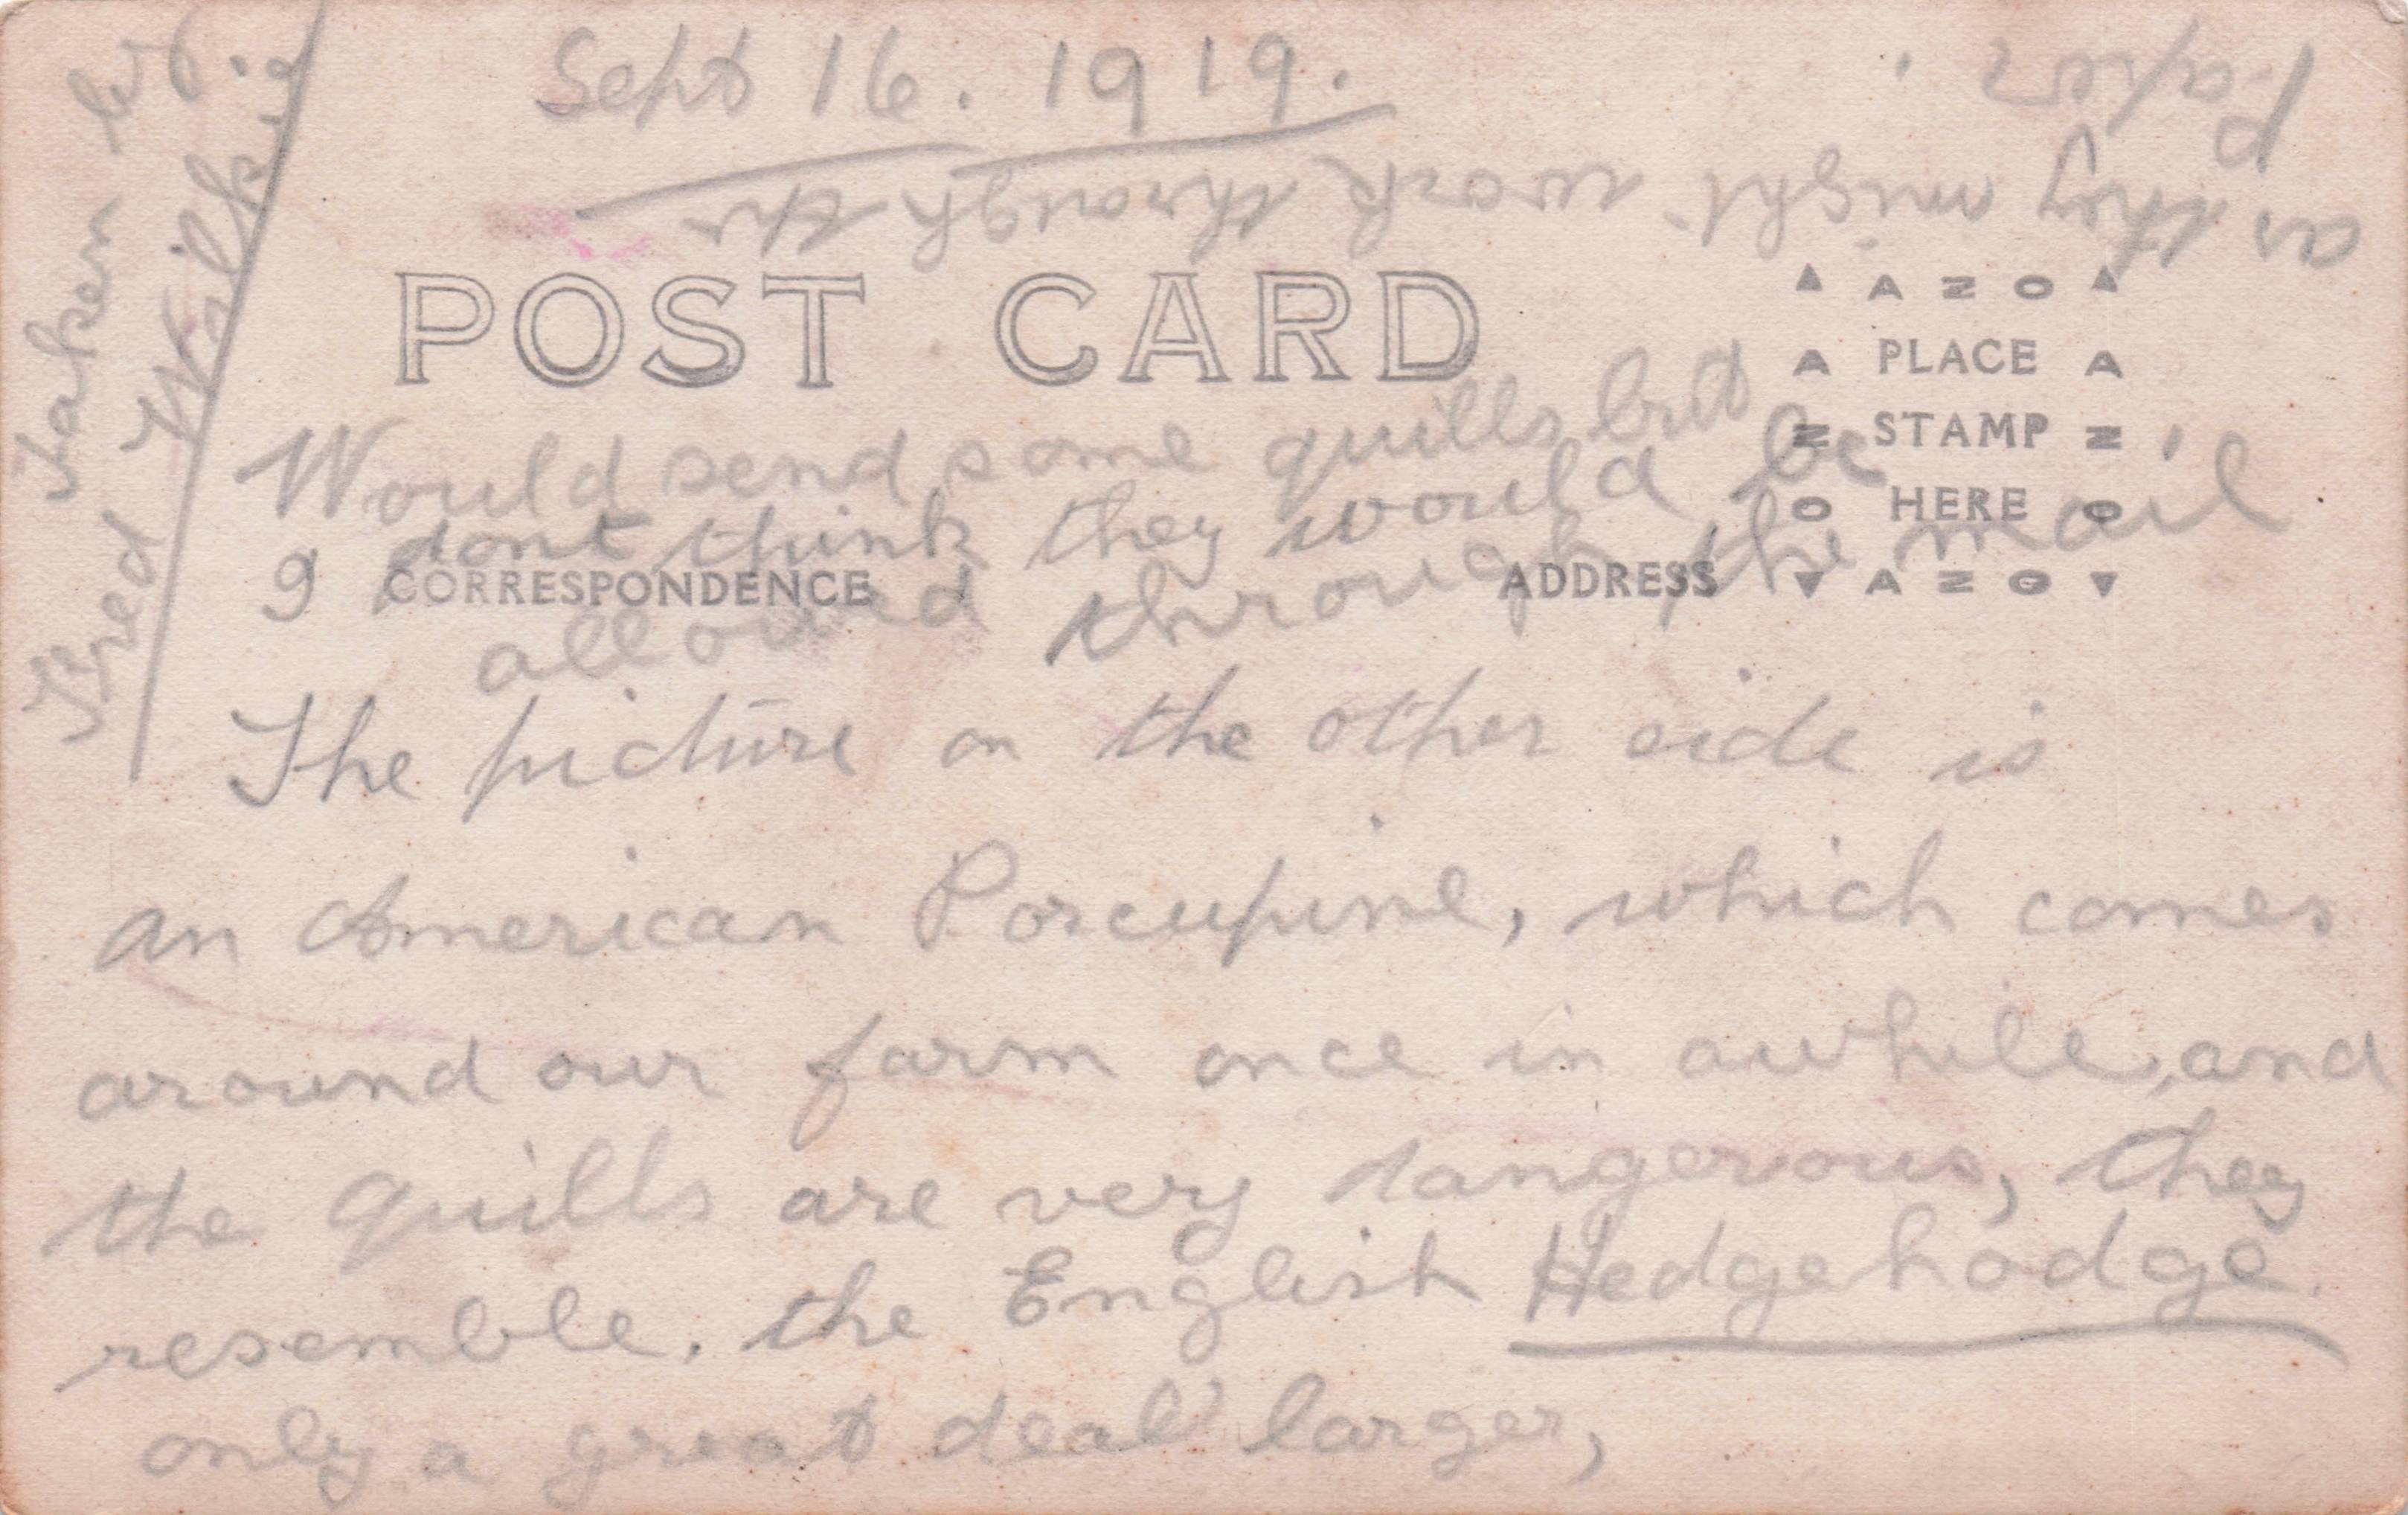 Sept 16. 1919.
Taken by
Fred Wilkie
POST CARD
▲ A Z O ▲
A PLACE A
Z STAMP Z
O HERE O
▼ A Z O ▼
CORRESPONDENCE
ADDRESS
The picture on the other side is
an American Porcupine, which comes
around our farm once in awhile, and
the quills are very dangerous, they
resemble. the English Hedgehodge.
only a great deal larger,
Would send some quills but
I dont think they would be
allowed through the mail
as they might work through the
paper.